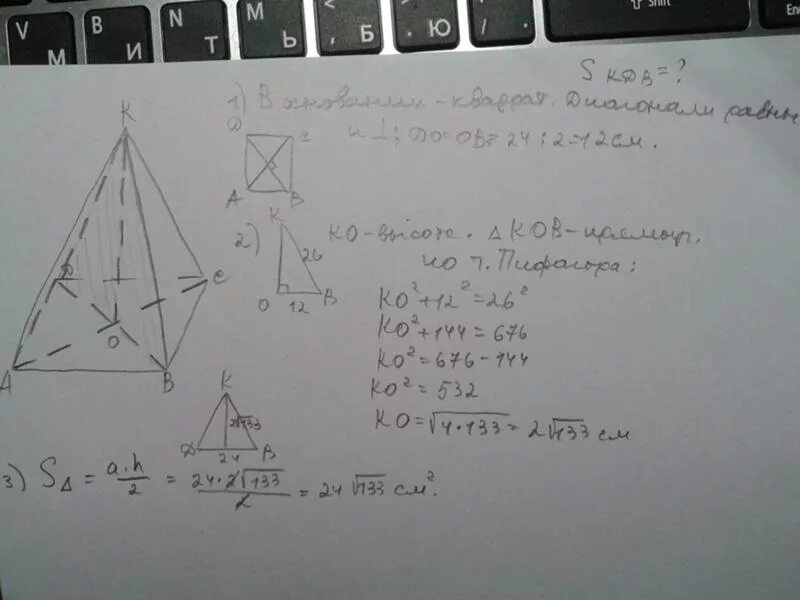 V М
B И
N Т
M Ь
< , Б
> . Ю
? / .
⇧ Shift
En
S KDB = ?
1) В основании - квадрат. Диагонали равны
и ⊥; DO=OB= 24 : 2=12см.
D C
A B
K
D C
O
A B
2)
K
26
O 12 B
KO-высота. △ KOB-прямоуг.
по т. Пифагора:
KO²+12²=26²
KO²+144=676
KO²=676-144
KO²=532
KO=√4·133=2√133 см
K
2√133
D 24 B
3) S△ = a·h/2 = 24·2√133/2 = 24√133 см².